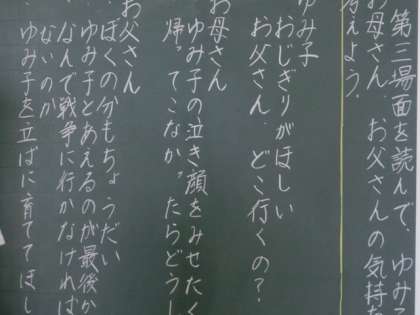 第三場面を読んで、ゆみ子
お母さん お父さんの気持ち
考えよう。
ゆみ子
おじぎりがほしい
お父さん、どこ行くの?
お母さん
ゆみ子の泣き顔をみせたく
帰ってこなかったらどうし
お父さん
・ぼくの分もちょうだい
・ゆみ子とあえるのが最後か
・なんで戦争に行かなければ
ないのか
・ゆみ子を立ばに育ててほし